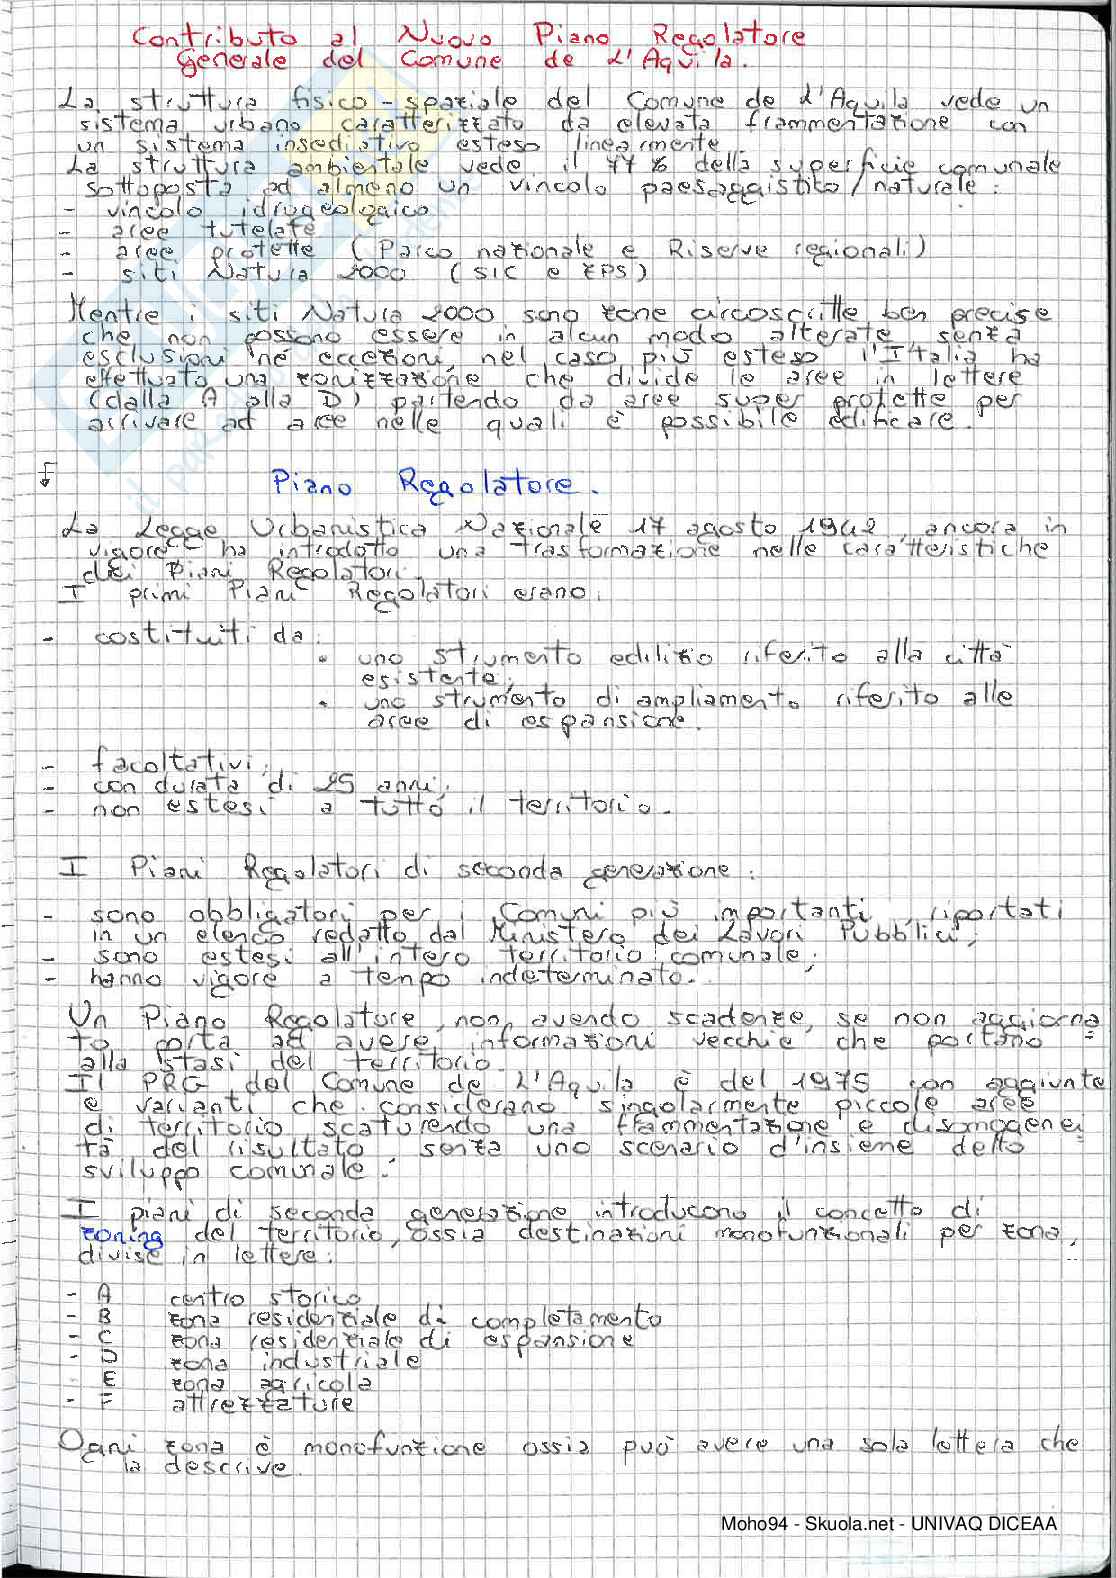 Contributo al Nuovo Piano Regolatore
Generale del Comune de L'Aquila.
La struttura fisico-spaziale del Comune de L'Aquila vede un
sistema urbano caratterizzato da elevata frammentazione con
un sistema insediativo esteso linearmente.
La struttura ambientale vede il 77% della superficie comunale
sottoposta ad almeno un vincolo paesaggistico/naturale:
- vincolo idrogeologico
- aree tutelate
- aree protette (Parco nazionale e Riserve regionali)
- siti Natura 2000 (SIC e ZPS)
Mentre i siti Natura 2000 sono zone circoscritte ben precise
che non possono essere in alcun modo alterate, senza
esclusioni né eccezioni, nel caso più esteso l'Italia ha
effettuato una zonizzazione che divide le aree in lettere
(dalla A alla D) partendo da aree super protette per
arrivare ad aree nelle quali è possibile edificare.
Piano Regolatore.
La Legge Urbanistica Nazionale 17 agosto 1942, ancora in
vigore ha introdotto una trasformazione nelle caratteristiche
dei Piani Regolatori.
I primi Piani Regolatori erano:
- costituiti da:
• uno strumento edilizio riferito alla città
esistente;
• uno strumento di ampliamento riferito alle
aree di espansione.
- facoltativi;
- con durata di 25 anni;
- non estesi a tutto il territorio.
I Piani Regolatori di seconda generazione:
- sono obbligatori per i Comuni più importanti, riportati
in un elenco redatto dal Ministero dei Lavori Pubblici;
- sono estesi all'intero territorio comunale;
- hanno vigore a tempo indeterminato.
Un Piano Regolatore, non avendo scadenze, se non aggiorna=
to porta ad avere informazioni vecchie che portano
alla stasi del territorio.
Il PRG del Comune de L'Aquila è del 1975 con aggiunte
e varianti che considerano singolarmente piccole aree
di territorio scaturendo una frammentazione e disomogenei
tà del risultato, senza uno scenario d'insieme dello
sviluppo comunale.
I piani di seconda generazione introducono il concetto di
zoning del territorio, ossia destinazioni monofunzionali per zona,
divise in lettere:
- A centro storico
- B zona residenziale di completamento
- C zona residenziale di espansione
- D zona industriale
- E zona agricola
- F attrezzature
Ogni zona è monofunzione ossia può avere una sola lettera che
la descrive.
Moho94 - Skuola.net - UNIVAQ DICEAA